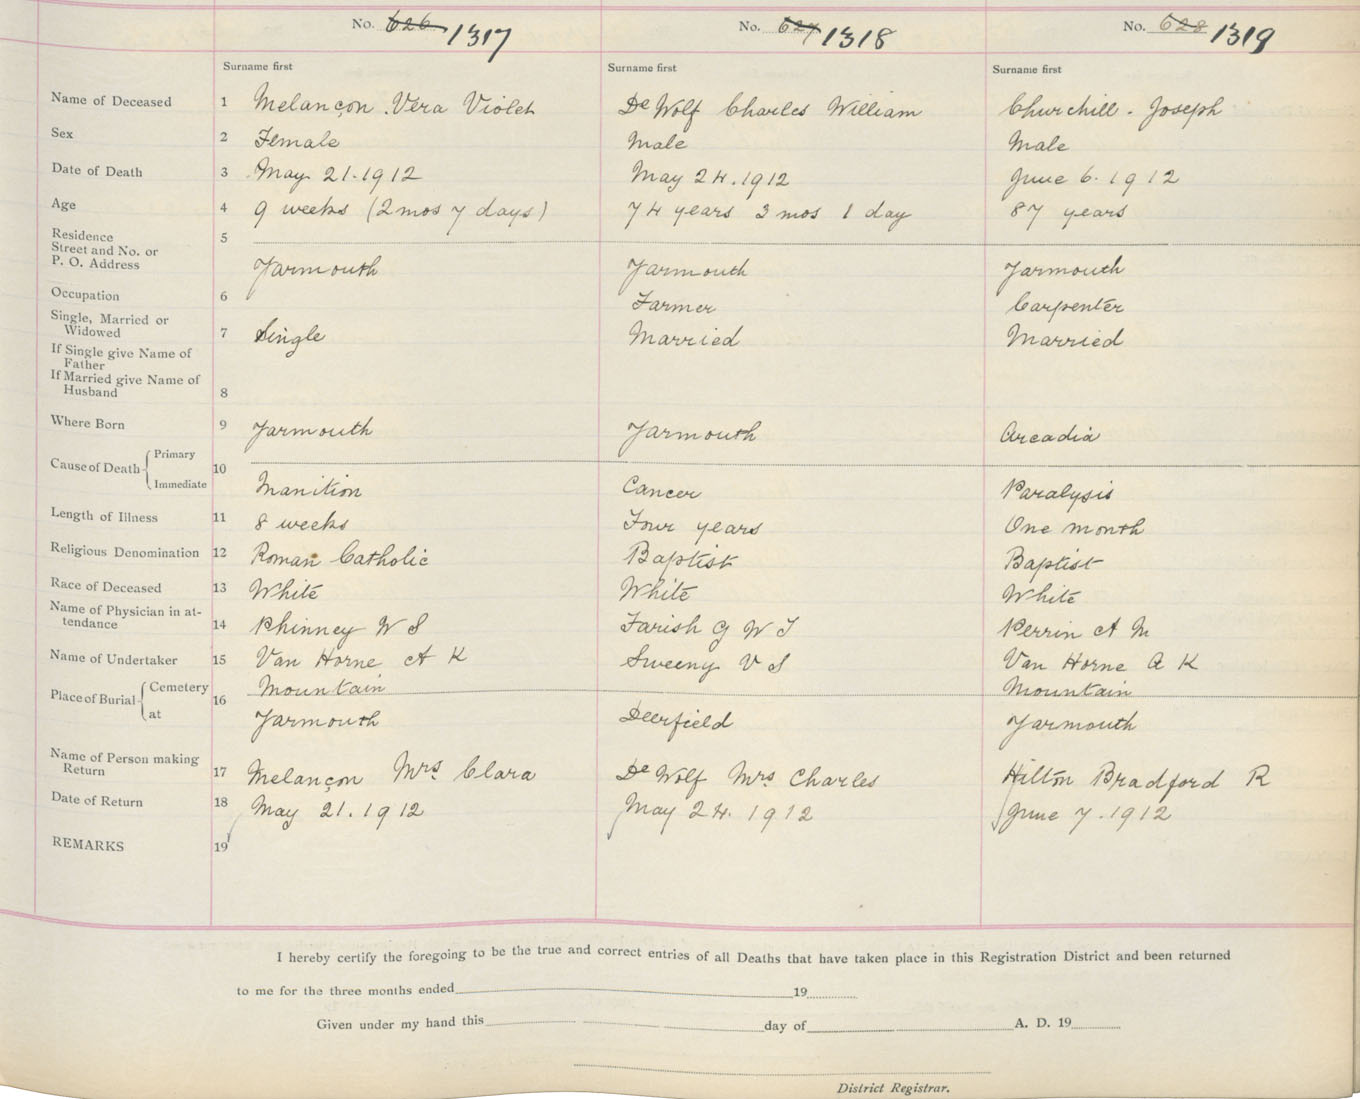 No. 626 1317 No. 627 1318 No. 628 1319
Surname first Surname first Surname first
Name of Deceased 1 Melançon. Vera Violet DeWolf Charles William Churchill. Joseph
Sex 2 Female Male Male
Date of Death 3 May 21.1912 May 24.1912 June 6.1912
Age 4 9 weeks (2 mos 7 days) 74 years 3 mos 1 day 87 years
Residence 5
Street and No. or
P. O. Address Yarmouth Yarmouth Yarmouth
Occupation 6 Farmer Carpenter
Single, Married or
Widowed 7 Single Married Married
If Single give Name of
Father
If Married give Name of
Husband 8
Where Born 9 Yarmouth Yarmouth Arcadia
Cause of Death Primary 10
Immediate Manition Cancer Paralysis
Length of Illness 11 8 weeks Four years One month
Religious Denomination 12 Roman Catholic Baptist Baptist
Race of Deceased 13 White White White
Name of Physician in at-
tendance 14 Phinney W S Farish G W T Perrin A M
Name of Undertaker 15 Van Horne A K Sweeny V S Van Horne A K
Place of Burial Cemetery 16 Mountain Mountain
at Yarmouth Deerfield Yarmouth
Name of Person making
Return 17 Melançon Mrs Clara DeWolf Mrs. Charles Hilton Bradford R
Date of Return 18 May 21.1912 May 24.1912 June 7.1912
REMARKS 19
I hereby certify the foregoing to be the true and correct entries of all Deaths that have taken place in this Registration District and been returned
to me for the three months ended 19
Given under my hand this day of A. D. 19
District Registrar.